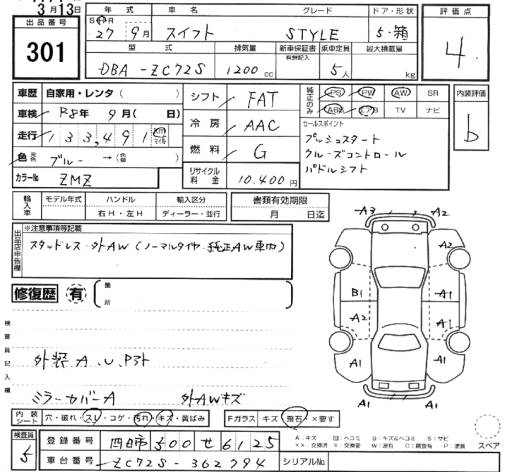 3月13日
出品番号
301
年式 車名 グレード ドア・形状
S H R
27年9月 スイフト STYLE 5・箱
型式 排気量 新車保証書 有無記入 乗車定員 最大積載量
DBA-ZC72S 1200cc 5人 kg
評価点
4
内装評価
b
車歴 自家用・レンタ( )
車検 R8年9月( 日)
走行 133,491 km マイル
色 ブルー →
カラーNo ZMZ
シフト FAT
冷房 AAC
燃料 G
リサイクル料金 10,400円
純正のみ PS PW AW SR
ABS エアB TV ナビ
セールスポイント
プッシュスタート
クルーズコントロール
パドルシフト
輸入車 モデル年式 ハンドル 輸入区分
右H・左H ディーラー・並行
書類有効期限
月 日迄
出品店申告欄
※注意事項等記載
スタッドレス・外AW(ノーマルタイヤ 純正AW車内)
修復歴 有 箇所
検査員記入欄
外装A、U、P外
ミラーカバーA 外AWキズ
A3 A2
B1 A1
A2 A1
A1
A1 A1
内装シート 穴・破れ・スレ・コゲ・汚れ・キズ・黄ばみ
Fガラス キズ・飛石・×要す
A:キズ
スペア
検査員 5
登録番号
車台番号 ZC72S-362794
シリアルNo